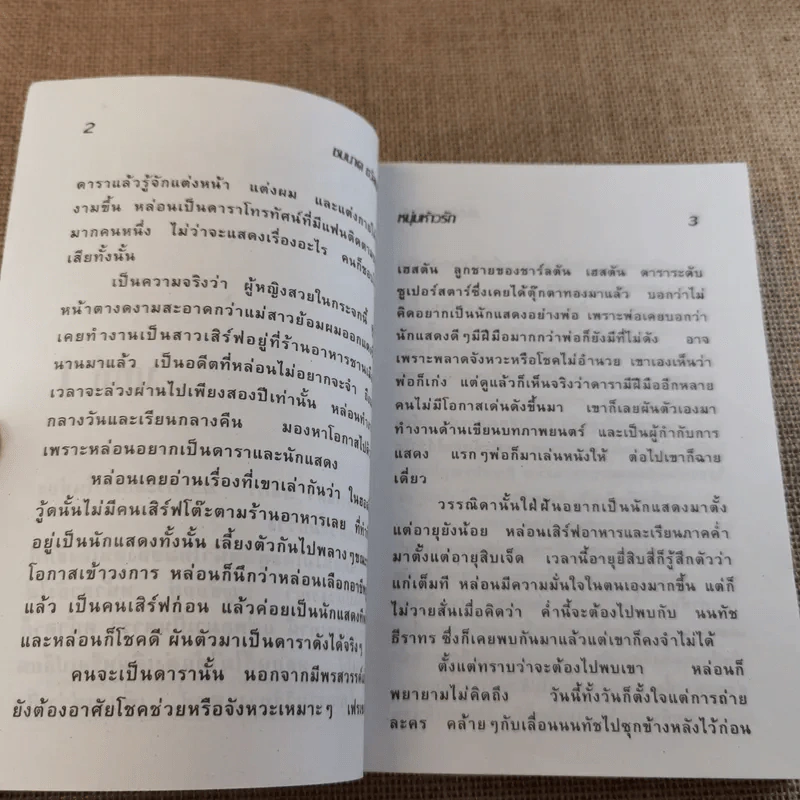 2
ดาราแล้วรู้จักแต่งหน้า แต่งผม และแต่งกาย
งามขึ้น หล่อนเป็นดาราโทรทัศน์ที่มีแฟนติดตาม
มากคนหนึ่ง ไม่ว่าจะแสดงเรื่องอะไร คนก็ชอบ
เสียทั้งนั้น
เป็นความจริงว่า ผู้หญิงสวยในกระจกนี้
หน้าตางดงามสะอาดกว่าแม่สาวย้อมผมออกแดง
เคยทำงานเป็นสาวเสิร์ฟอยู่ที่ร้านอาหารชาน
นานมาแล้ว เป็นอดีตที่หล่อนไม่อยากจะจำ
เวลาจะล่วงผ่านไปเพียงสองปีเท่านั้น หล่อนทำ
กลางวันและเรียนกลางคืน มองหาโอกาสไป
เพราะหล่อนอยากเป็นดาราและนักแสดง
หล่อนเคยอ่านเรื่องที่เขาเล่ากันว่า ใน
วู้ดนั้นไม่มีคนเสิร์ฟโต๊ะตามร้านอาหารเลย
อยู่เป็นนักแสดงทั้งนั้น เลี้ยงตัวกันไปพลางๆ
โอกาสเข้าวงการ หล่อนก็นึกว่าหล่อนเลือก
แล้ว เป็นคนเสิร์ฟก่อน แล้วค่อยเป็นนักแสดง
และหล่อนก็โชคดี ผันตัวมาเป็นดาราดังได้จริงๆ
คนจะเป็นดารานั้น นอกจากมีพรสวรรค์
ยังต้องอาศัยโชคช่วยหรือจังหวะเหมาะๆ
หนุ่มห้าวรัก 3
เฮสตัน ลูกชายของชาร์ลตัน เฮสตัน ดาราระดับ
ซูเปอร์สตาร์ซึ่งเคยได้ตุ๊กตาทองมาแล้ว บอกว่าไม่
คิดอยากเป็นนักแสดงอย่างพ่อ เพราะพ่อเคยบอกว่า
นักแสดงดีๆมีฝีมือมากกว่าพ่อก็ยังมีที่ไม่ดัง อาจ
เพราะพลาดจังหวะหรือโชคไม่อำนวย เขาเองเห็นว่า
พ่อก็เก่ง แต่ดูแล้วก็เห็นจริงว่าดารามีฝีมืออีกหลาย
คนไม่มีโอกาสเด่นดังขึ้นมา เขาก็เลยผันตัวเองมา
ทำงานด้านเขียนบทภาพยนตร์ และเป็นผู้กำกับการ
แสดง แรกๆพ่อก็มาเล่นหนังให้ ต่อไปเขาก็ฉาย
เดี่ยว
วรรณิดานั้นใฝ่ฝันอยากเป็นนักแสดงมาตั้ง
แต่อายุยังน้อย หล่อนเสิร์ฟอาหารและเรียนภาคค่ำ
มาตั้งแต่อายุสิบเจ็ด เวลานี้อายุยี่สิบสี่ก็รู้สึกตัวว่า
แก่เต็มที หล่อนมีความมั่นใจในตนเองมากขึ้น แต่ก็
ไม่วายสั่นเมื่อคิดว่า ค่ำนี้จะต้องไปพบกับ นนทัช
ธีราทร ซึ่งก็เคยพบกันมาแล้วแต่เขาก็คงจำไม่ได้
ตั้งแต่ทราบว่าจะต้องไปพบเขา หล่อนก็
พยายามไม่คิดถึง วันนี้ทั้งวันก็ตั้งใจแต่การถ่าย
ละคร คล้ายๆกับเลื่อนนนทัชไปซุกข้างหลังไว้ก่อน